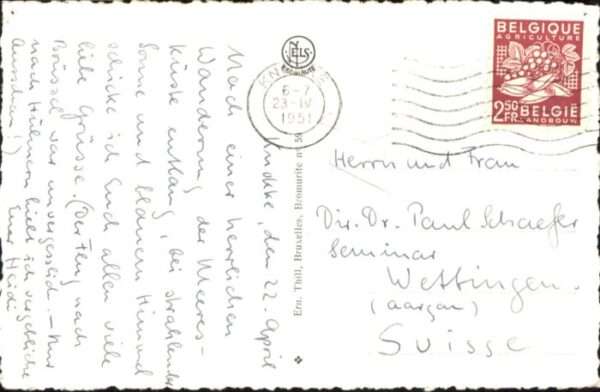 Knokke, den 22. April
Nach einer herrlichen
Wanderung der Meeres-
küste entlang, bei strahlender
Sonne und blauem Himmel
schicke ich Euch allen viele
liebe Grüsse. (Der Flug nach
Brüssel war unvergesslich. – Nur
nach Hülmern hielt ich vergebliche
Ausschau!) Eure Heidi
NELS
KNOKKE
6-7
23-IV
1951
Ern. Thill, Bruxelles, Bromurite n°
BELGIQUE
AGRICULTURE
2,50
FR
BELGIË
LANDBOUW
Herrn und Frau
Dir. Dr. Paul Schaefer
Seminar
Wettingen.
(Aargau)
Suisse